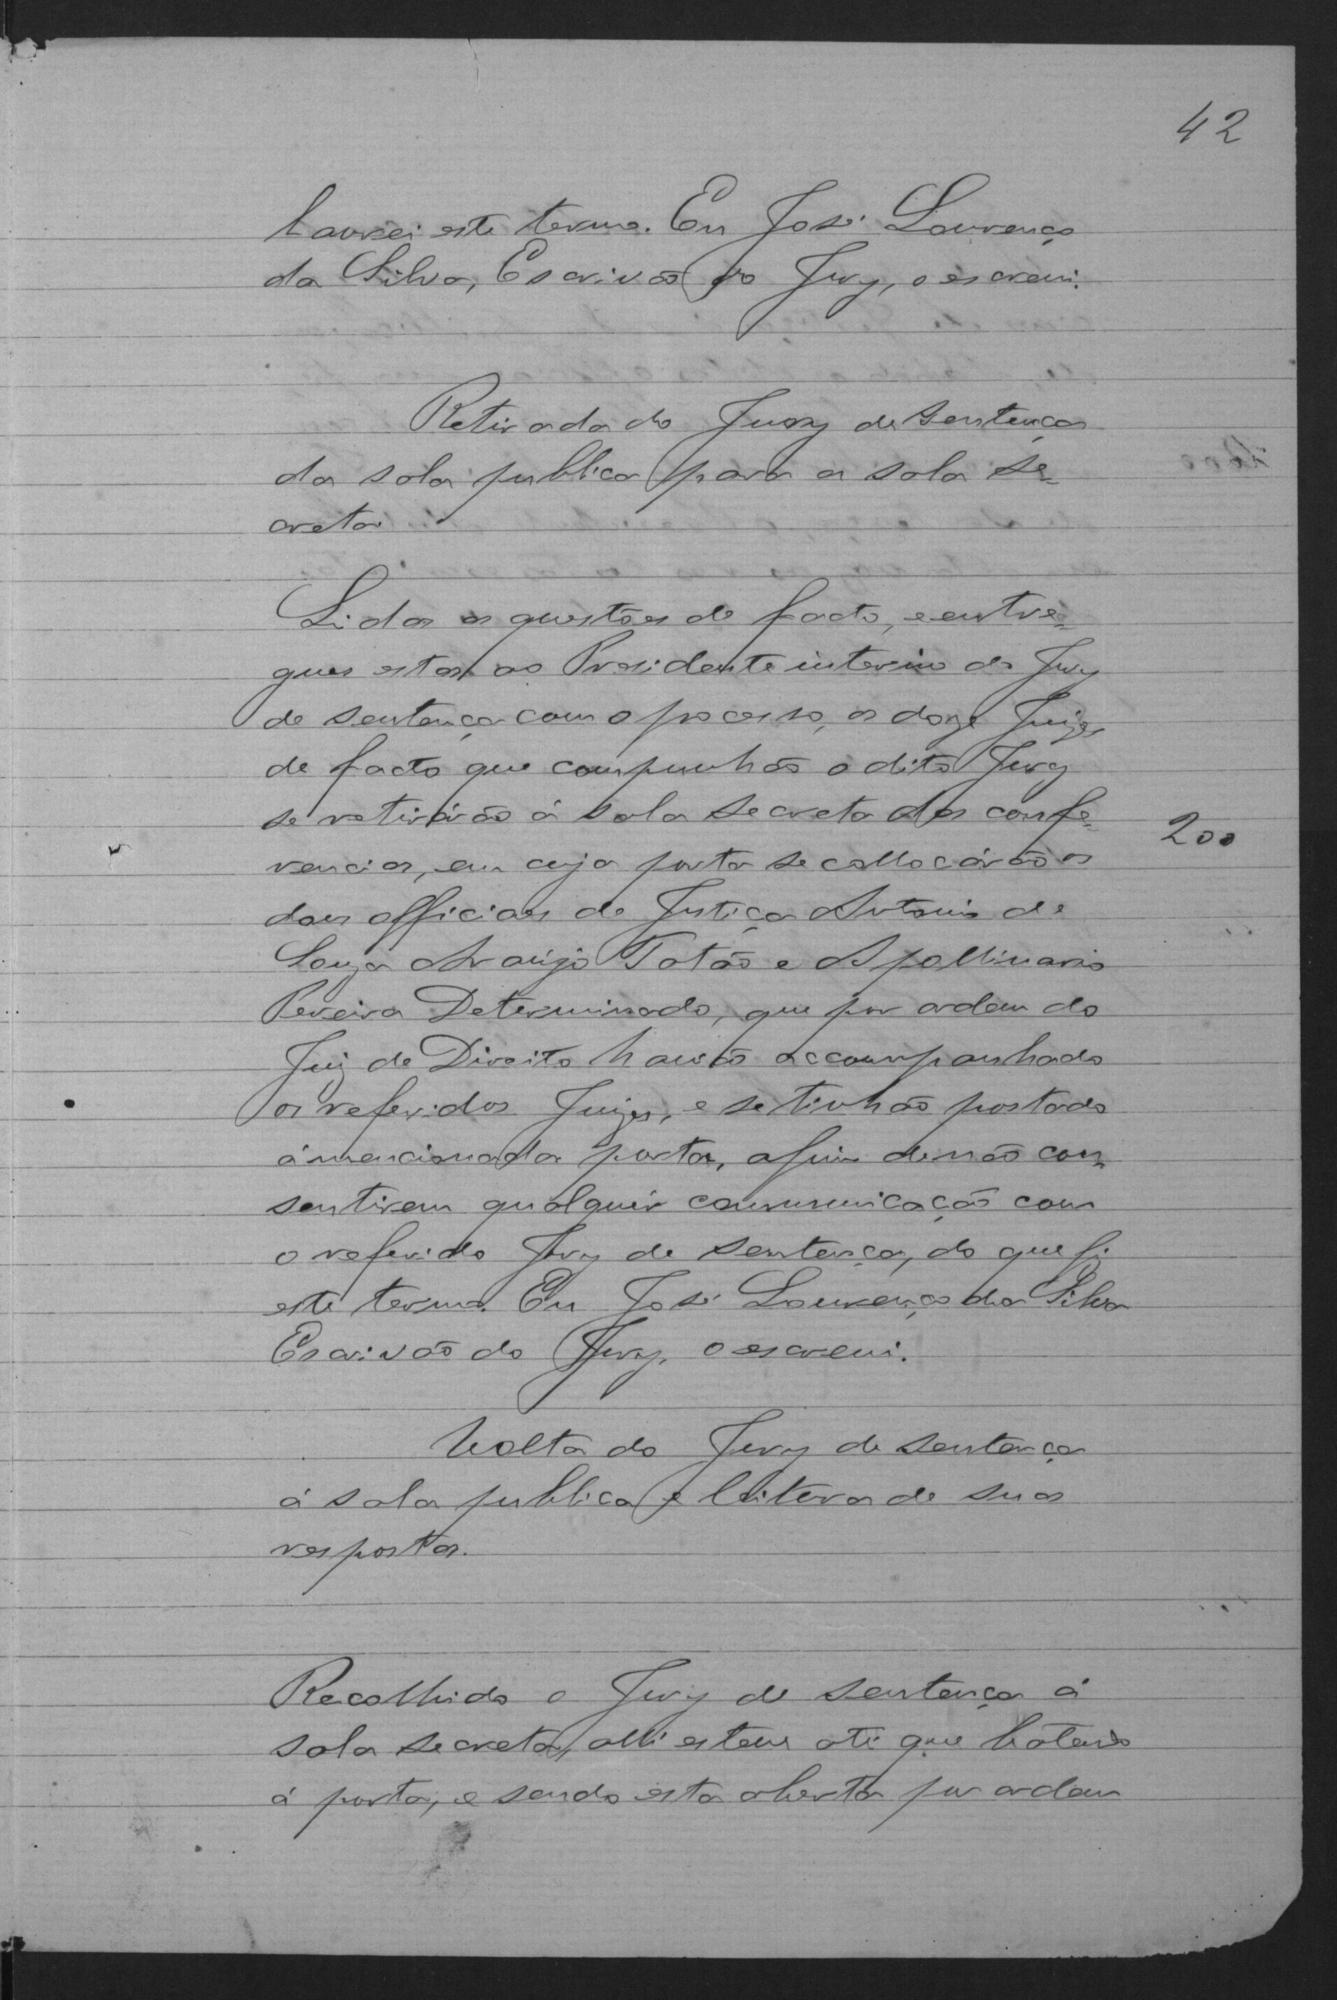 42
lavrei este termo. Eu José Lourenço
da Silva, Escrivão do Jury, o escrevi.
Retirada do Jury de sentença
da sala publica para a sala se-
creta.
Lidas as questões de facto, e entre-
gues estas ao Presidente interino do Jury
de sentença com o processo, os doze Juizes
de facto que compunhão o dito Jury
se retirárão á sala secreta das confe-
rencias, em cuja porta se collocárão os
200
dous officiaes de Justiça Antonio de
Souza Araújo Tatão e Apollinario
Pereira Determinado, que por ordem do
Juiz de Direito havião accompanhado
os referidos Juizes, e se tinhão postado
á mencionada porta, afim de não con-
sentirem qualquér communicação com
o referido Jury de sentença, do que fiz
este termo. Eu José Lourenço da Silva
Escrivão do Jury, o escrevi.
Volta do Jury de sentença
á sala publica e leitura de suas
respostas.
Recolhido o Jury de sentença á
sala secreta, alli esteve até que bateu
á porta, e sendo esta aberta por ordem